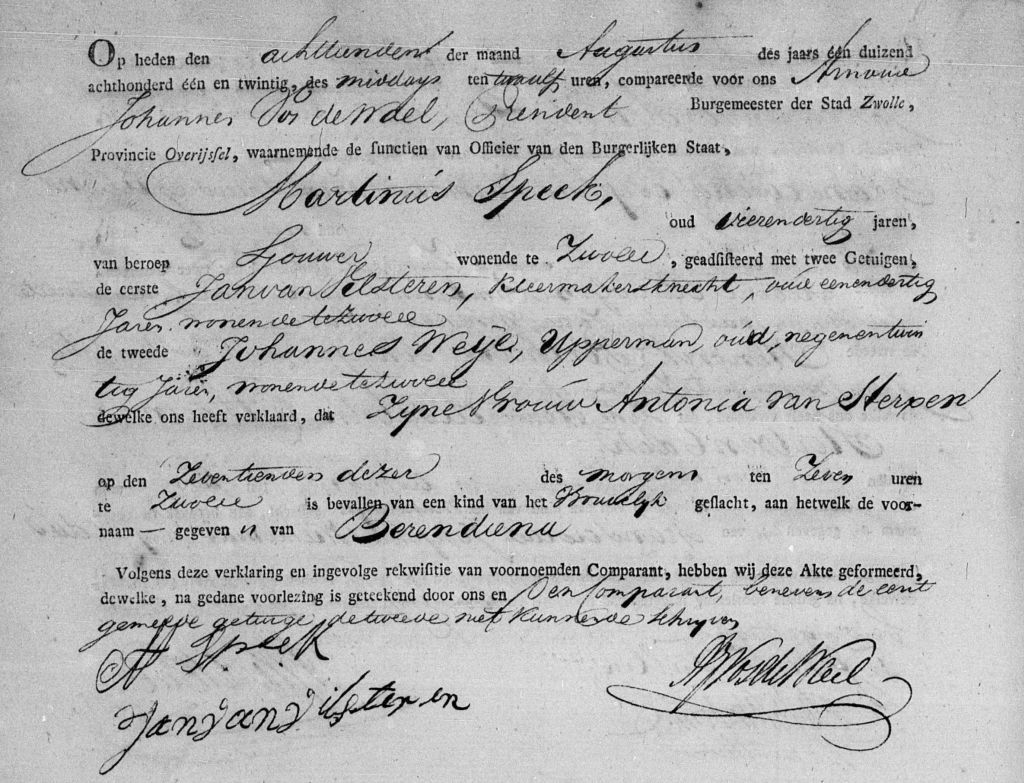 Op heden den achttiendenˢ der maand Augustus des jaars één duizend
achthonderd één en twintig, des middags ten twaalf uren, compareerde voor ons Arnold
Johannes Vos de Wael, President Burgemeester der Stad Zwolle,
Provincie Overijssel, waarnemende de functien van Officier van den Burgerlijken Staat,
Martinus Speek,
oud vierendertig jaren,
van beroep Sjouwer wonende te Zwolle, geadsisteerd met twee Getuigen,
de eerste Jan van Ilsteren, Kleermakersknecht, oud eenendertig
Jaren wonende te Zwolle
de tweede Johannes Weije, Upperman, oud, negenentwin
tig Jaren, wonende te Zwolle
dewelke ons heeft verklaard, dat Zyne Vrouw Antonia van Sterpen
op den Zeventienden dezer des morgens ten Zeven uren
te Zwolle is bevallen van een kind van het Vrouwelyk geslacht, aan hetwelk de voor-
naam — gegeven is van Berendiena
Volgens deze verklaring en ingevolge rekwisitie van voornoemden Comparant, hebben wij deze Akte geformeerd,
dewelke, na gedane voorlezing is geteekend door ons en Den Comparant, benevens de eerst
gemelde getuige, de tweede niet kunnende schryven
Speek
AJ Vos de Wael
Jan van ilsteren